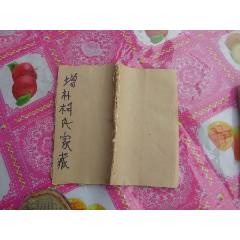 增朴柯氏家藏